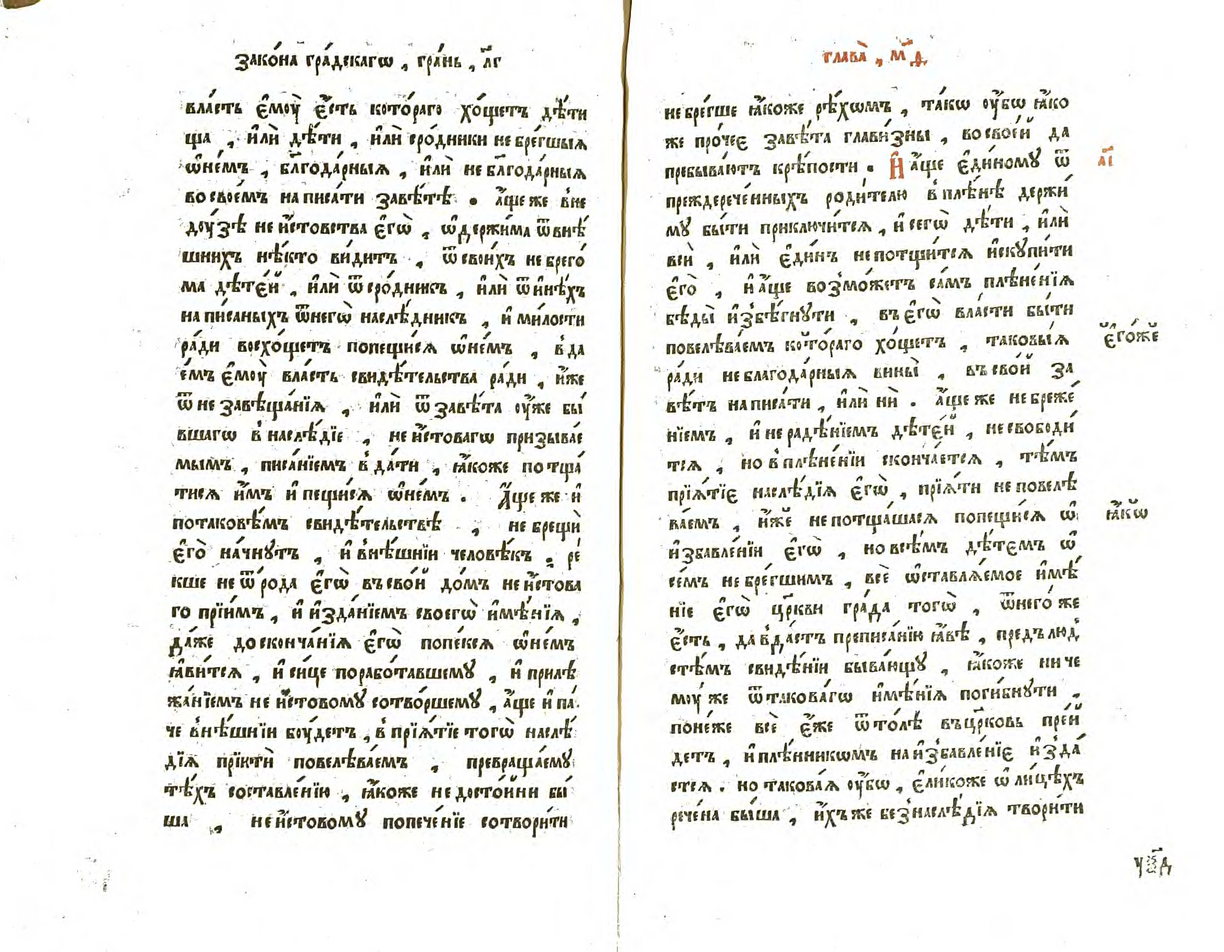 зако́на гра́дскагѡ , гра́нь , л҃г
вла́сть є҆моу̀ є҆́сть кото́раго хо́щетъ дѣ́ти
ща , и҆лѝ дѣ́ти , и҆лѝ сро́дники небре́гшыѧ
ѡ҆не́мъ , бл҃года́рныѧ , и҆лѝ небл҃года́рныѧ
восвое́мъ написа́ти завѣ́тѣ . а҆́щеже вне
доу́зѣ неи҆́стовства є҆гѡ̀ , ѡ҆держи́ма ѿвнѣ́
шнихъ нѣ́кто ви́дитъ , ѿсвои́хъ небрего́
ма дѣте́й , и҆лѝ ѿсро́дникъ , и҆лѝ ѿи҆нѣ́хъ
напи́саныхъ ѿнегѡ̀ наслѣ́дникъ , и҆ ми́лости
ра́ди восхо́щетъ попещи́сѧ ѡ҆не́мъ , вда
е́мъ є҆моу̀ вла́сть свидѣ́тельства ра́ди , и҆́же
ѿ незавѣща́нїѧ , и҆лѝ ѿзавѣ́та оу҆́же бы́
вшагѡ внаслѣ́дїе , неи҆́стовагѡ призыва́е
мымъ , писа́нїемъ вда́ти , ꙗ҆́коже потща́
тисѧ и҆́мъ и҆ пещи́сѧ ѡ҆не́мъ . А҆́щеже и҆
потаково́мъ свидѣ́тельствѣ , небрещѝ
є҆гѡ̀ начну́тъ , и҆ внѣ́шнїи человѣ́къ , ре́
кше неѿ ро́да є҆гѡ̀ въсво́й до́мъ неи҆́стова
го прїи́мъ , и҆ и҆зда́нїемъ своегѡ̀ и҆мѣ́нїѧ ,
да́же доскончанїѧ є҆гѡ̀ попе́ксѧ ѡ҆не́мъ
ꙗ҆ви́тсѧ , и҆ си́це порабо́тавшему , и҆ прилѣ
жа́нїемъ неи҆́стовому сотво́ршему , а҆́ще и҆ па́
че внѣ́шнїи боу́детъ , впрїѧ́тїе тогѡ̀ наслѣ́
дїѧ прїитѝ повелѣва́емъ , превраща́ему
тѣ́хъ составле́нїю , ꙗ҆́коже недосто́йни бы́
ша , неи҆́стовому попече́нїе сотвори́ти
глава̀ , м҃д
небре́гше ꙗ҆́коже рѣ́хомъ , та́кѡ оу҆́бѡ ꙗ҆́ко
же про́чеє завѣ́та главизны̀ , восвое́й да
пребыва́ютъ крѣ́пости . И҆ а҆́ще є҆ди́ному ѿ
преждерече́нныхъ роди́телю впле́нѣ держи́
му бы́ти приключи́тсѧ , и҆ сегѡ̀ дѣ́ти , и҆лѝ
всѝ , и҆лѝ є҆ди́нъ непотщи́тсѧ и҆скупи́ти
є҆го̀ , и҆ а҆́ще возмо́жетъ са́мъ плѣне́нїѧ
бѣды̀ и҆збѣ́гнути , въ є҆гѡ̀ вла́сти бы́ти
повелѣва́емъ кото́раго хо́щетъ , таковы́ѧ
ра́ди неблагода́рныѧ вины̀ , въ сво́й за
вѣ́тъ написа́ти , и҆лѝ нѝ . а҆́щеже небреже́
нїемъ , и҆ нераде́нїемъ дѣте́й , несвободи́
тсѧ , но вплѣне́нїи сконча́етсѧ , тѣ́мъ
прїѧ́тїє наслѣ́дїѧ є҆гѡ̀ , прїѧ́ти неповелѣ
ва́емъ , и҆̀же непотща́шасѧ попещи́сѧ ѡ҆
и҆збавле́нїи є҆гѡ̀ , но всѣ́мъ дѣ́темъ ѡ҆
се́мъ небре́гшимъ , всѐ ѡ҆ставлѧ́емое и҆мѣ́
нїе є҆гѡ̀ цр҃кви гра́да тогѡ̀ , ѿнего́же
є҆́сть , да вда́стъ преписа́нїю ꙗ҆́вѣ , предъ люд
сте́мъ свиде́нїи быва́ющу , ꙗ҆́коже ниче
моу́же ѿтакова́гѡ и҆мѣ́нїѧ поги́бнути ,
поне́же всѐ є҆́же ѿто́лѣ въцр҃ковь пре́й
детъ , и҆ плѣ́нникѡмъ наи҆збавле́нїє и҆зда́
стсѧ . но такова́ѧ оу҆́бѡ , є҆ли́коже ѡ҆ ли́цѣхъ
рече́на бы́ша , и҆́хъже безнаслѣ́дїѧ твори́ти
а҃і
є҆гѡ́же
ꙗ҆́кѡ